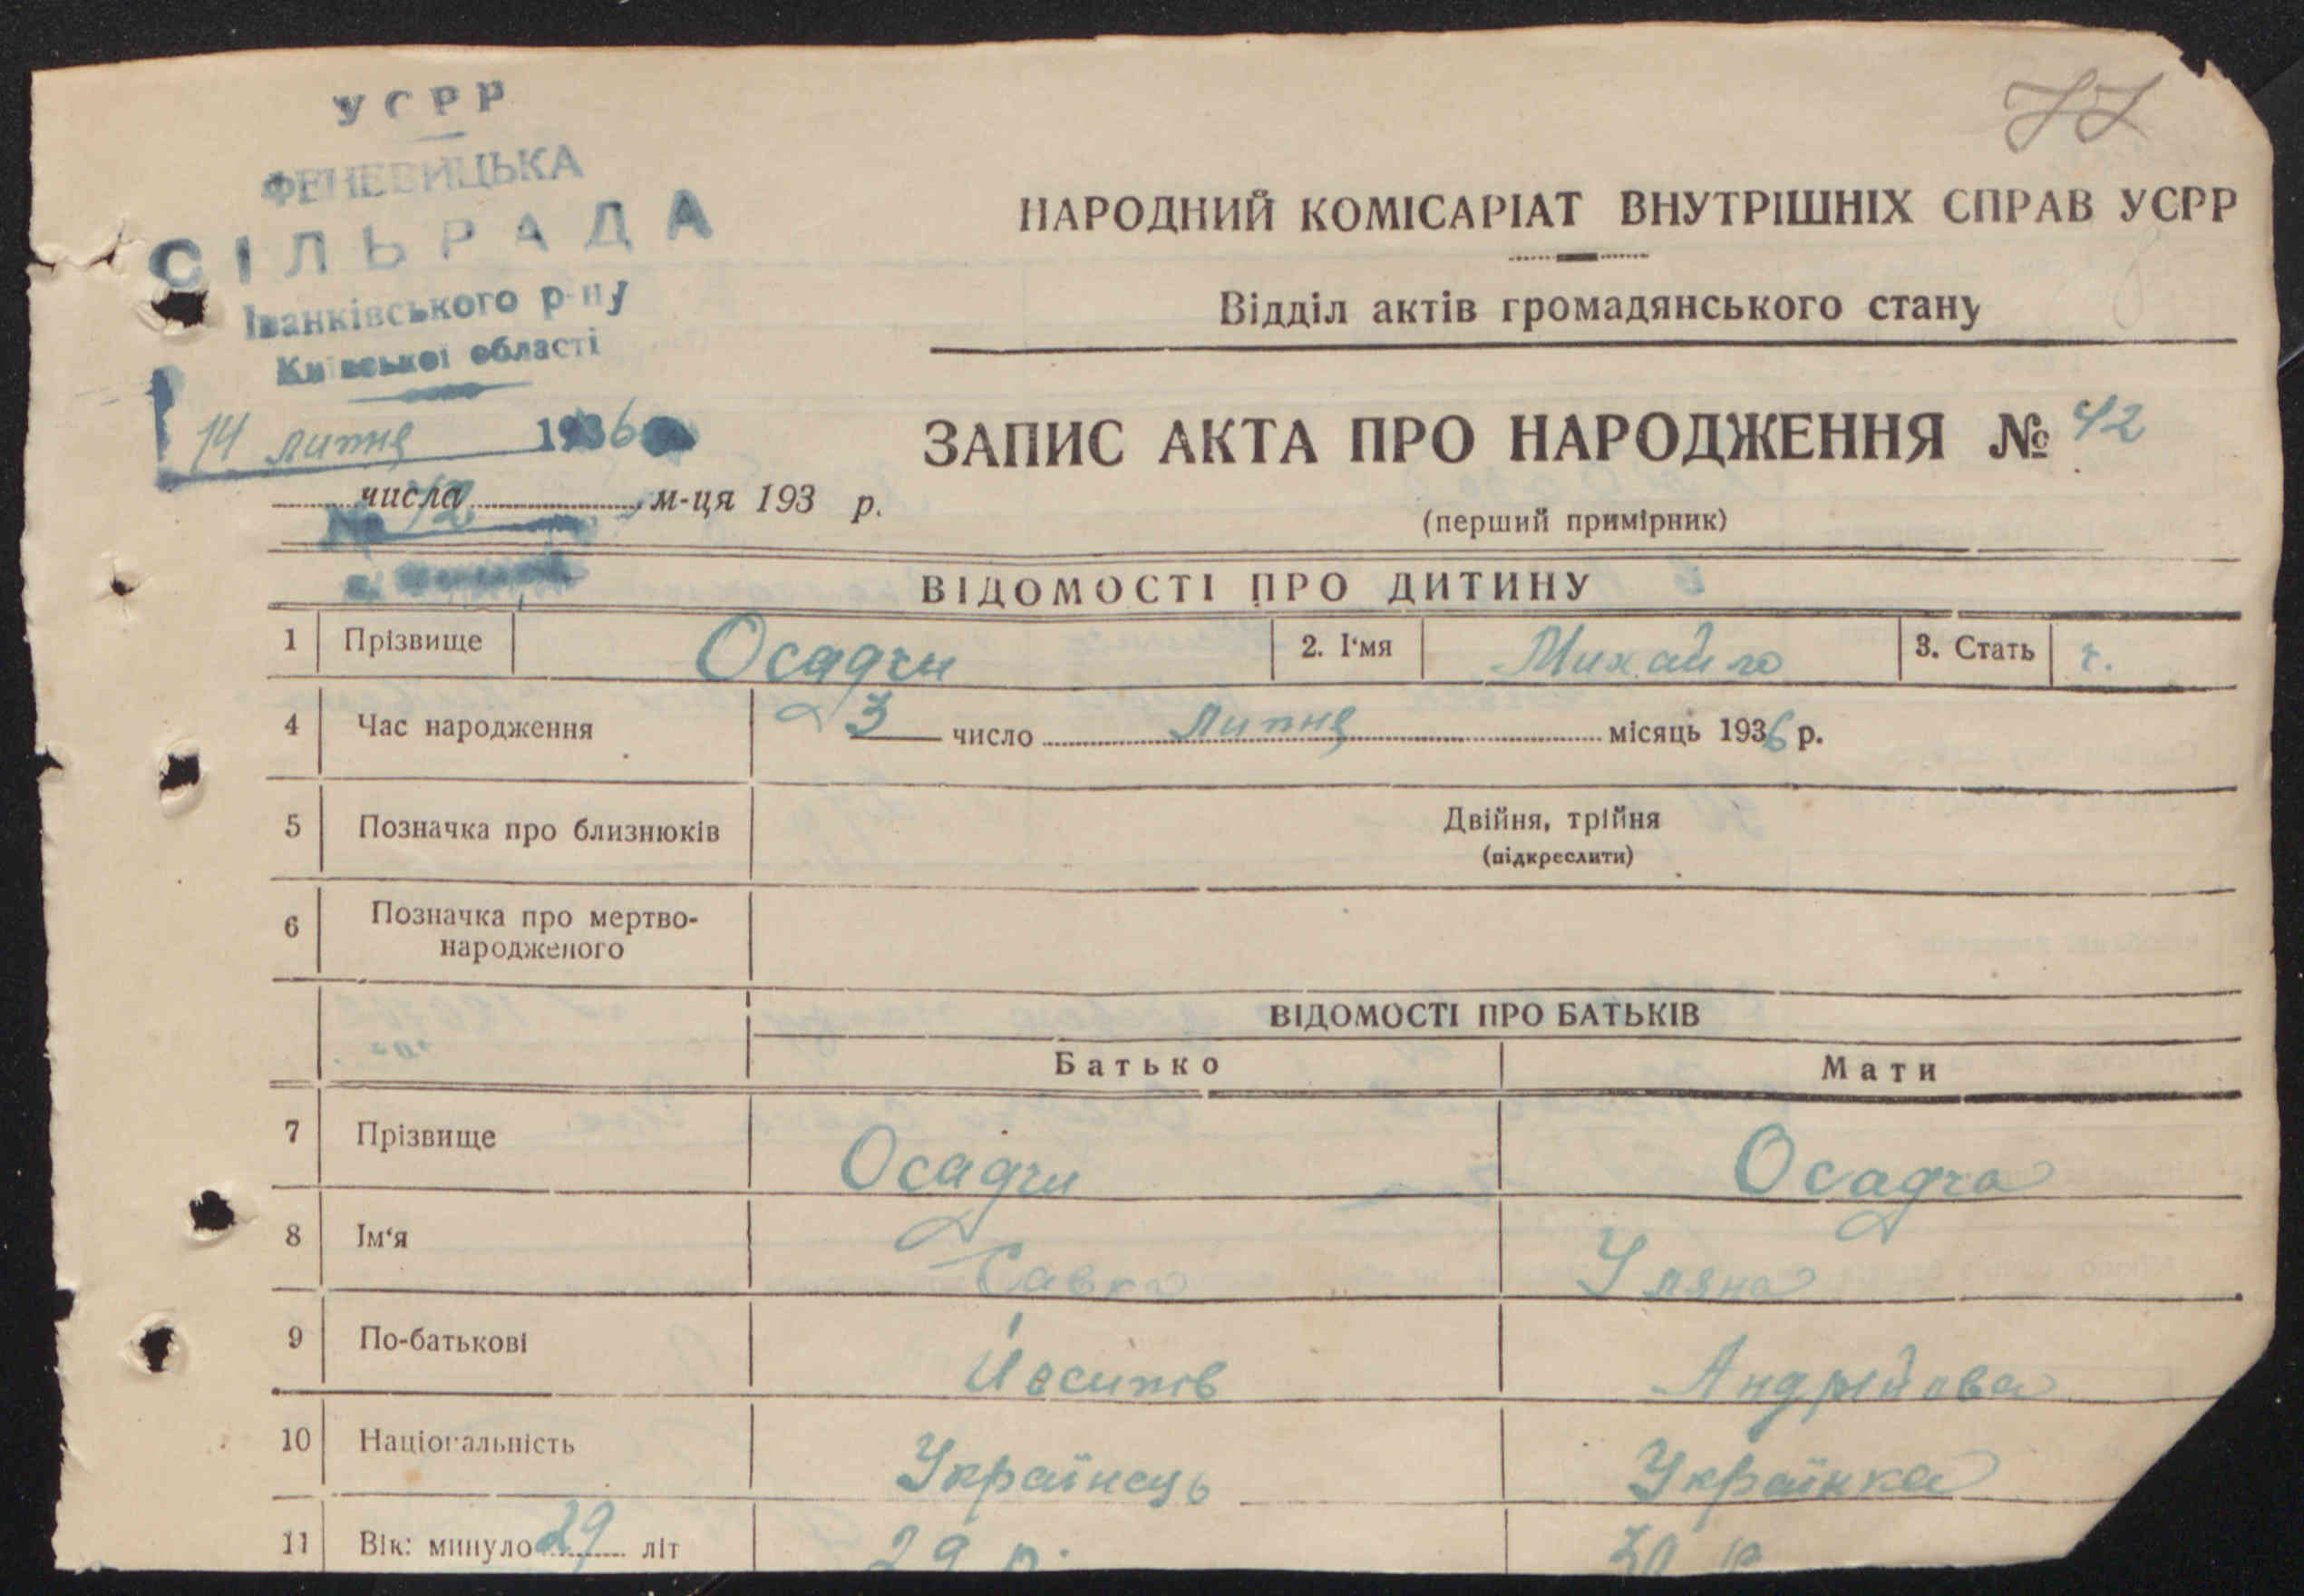 77
УСРР
ФЕНЕВИЦЬКА
СІЛЬРАДА
Іванківського р-ну
Київської області
14 липня 1936
№ 42
числа м-ця 193 р.
НАРОДНИЙ КОМІСАРІАТ ВНУТРІШНІХ СПРАВ УСРР
Відділ актів громадянського стану
ЗАПИС АКТА ПРО НАРОДЖЕННЯ № 42
(перший примірник)
ВІДОМОСТІ ПРО ДИТИНУ
1 Прізвище Осадчи 2. І'мя Михайло 3. Стать ч.
4 Час народження 3 число липня місяць 1936 р.
5 Позначка про близнюків Двійня, трійня
(підкреслити)
6 Позначка про мертво-
народженого
ВІДОМОСТІ ПРО БАТЬКІВ
Батько Мати
7 Прізвище Осадчи Осадча
8 Ім'я Савка Уляна
9 По-батькові Йосипів Андрійова
10 Національність Українець Українка
11 Вік: минуло 29 літ 29 р. 30 р